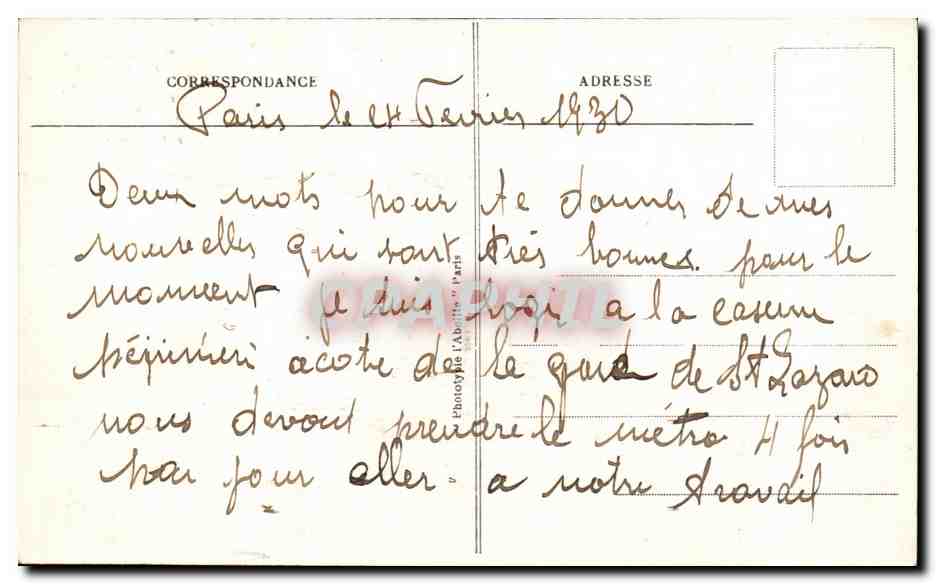 CORRESPONDANCE
ADRESSE
Paris le 24 Fevrier 1930
Deux mots pour te donner de mes
nouvelles qui sont très bonnes. pour le
moment je suis logé a la caserne
Pépinière a cote de la gare de St Lazare
nous devont prendre le métro 4 fois
par jour aller a notre travail
Phototypie l'Abeille" Paris